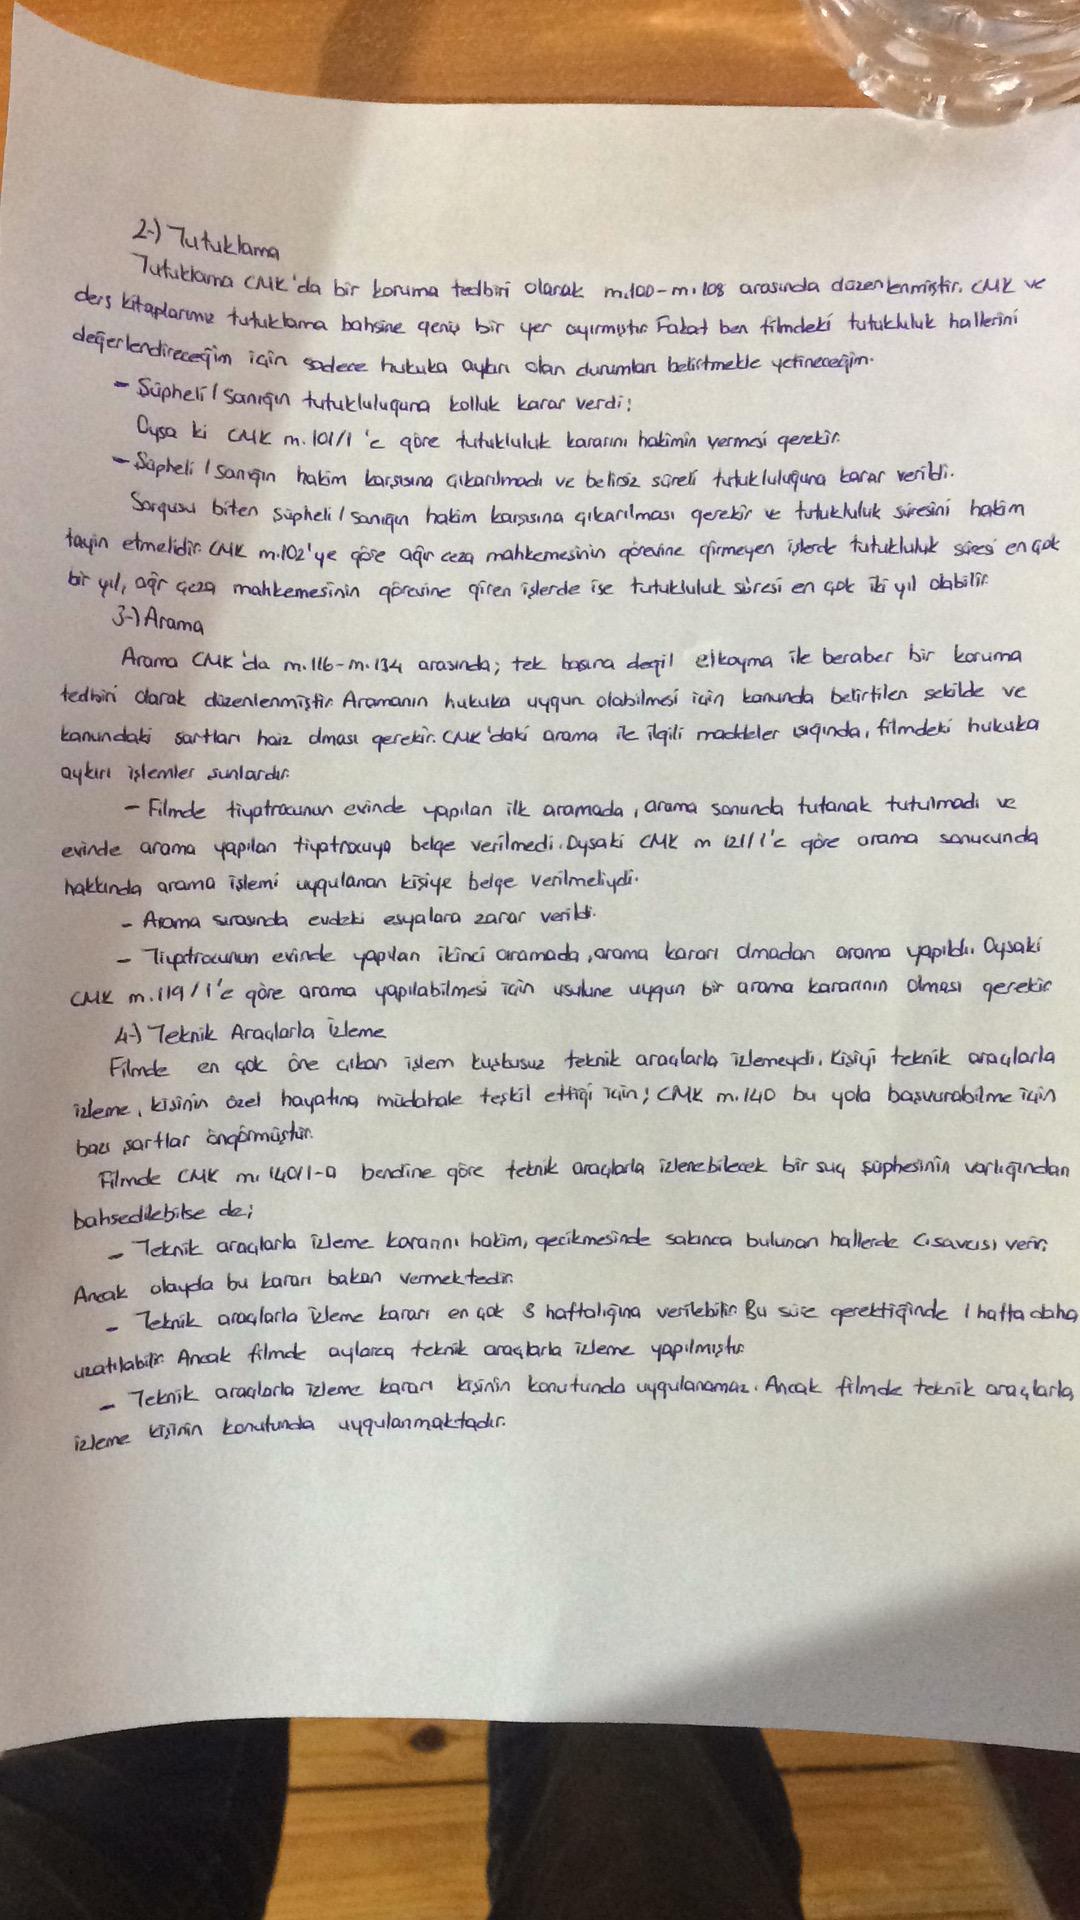 2-) Tutuklama
Tutuklama CMK'da bir koruma tedbiri olarak m.100-m.108 arasında düzenlenmiştir. CMK ve
ders kitaplarımız tutuklama bahsine geniş bir yer ayırmıştır. Fakat ben filmdeki tutukluluk hallerini
değerlendireceğim için sadece hukuka aykırı olan durumları belirtmekle yetineceğim.
- Şüpheli/Sanığın tutukluluğuna kolluk karar verdi;
Oysa ki CMK m.101/1'e göre tutukluluk kararını hakimin vermesi gerekir.
- Şüpheli/sanığın hakim karşısına çıkarılmadı ve belirsiz süreli tutukluluğuna karar verildi.
Sorgusu biten şüpheli/sanığın hakim karşısına çıkarılması gerekir ve tutukluluk süresini hakim
tayin etmelidir. CMK m.102'ye göre ağır ceza mahkemesinin görevine girmeyen işlerde tutukluluk süresi en çok
bir yıl, ağır ceza mahkemesinin görevine giren işlerde ise tutukluluk süresi en çok iki yıl olabilir.
3-) Arama
Arama CMK'da m.116-m.134 arasında; tek başına değil elkoyma ile beraber bir koruma
tedbiri olarak düzenlenmiştir. Aramanın hukuka uygun olabilmesi için kanunda belirtilen şekilde ve
kanundaki şartları haiz olması gerekir. CMK'daki arama ile ilgili maddeler ışığında, filmdeki hukuka
aykırı işlemler şunlardır:
- Filmde tiyatrocunun evinde yapılan ilk aramada, arama sonunda tutanak tutulmadı ve
evinde arama yapılan tiyatrocuya belge verilmedi. Oysaki CMK m 121/1'e göre arama sonucunda
hakkında arama işlemi uygulanan kişiye belge verilmeliydi.
- Arama sırasında evdeki eşyalara zarar verildi.
- Tiyatrocunun evinde yapılan ikinci aramada, arama kararı olmadan arama yapıldı. Oysaki
CMK m.119/1'e göre arama yapılabilmesi için usulune uygun bir arama kararının olması gerekir
4-) Teknik Araçlarla İzleme
Filmde en çok öne çıkan işlem kuşkusuz teknik araçlarla izlemeydi. Kişiyi teknik araçlarla
izleme, kişinin özel hayatına müdahale teşkil ettiği için; CMK m.140 bu yola başvurabilme için
bazı şartlar öngörmüştür.
Filmde CMK m.140/1-a bendine göre teknik araçlarla izlenebilecek bir suç şüphesinin varlığından
bahsedilebilse de;
- Teknik araçlarla izleme kararını hakim, gecikmesinde sakınca bulunan hallerde C.savcısı verir.
Ancak olayda bu kararı bakan vermektedir.
- Teknik araçlarla izleme kararı en çok 3 haftalığına verilebilir. Bu süre gerektiğinde 1 hafta daha
uzatılabilir. Ancak filmde aylarca teknik araçlarla izleme yapılmıştır
- Teknik araçlarla izleme kararı kişinin konutunda uygulanamaz. Ancak filmde teknik araçlarla
izleme kişinin konutunda uygulanmaktadır.